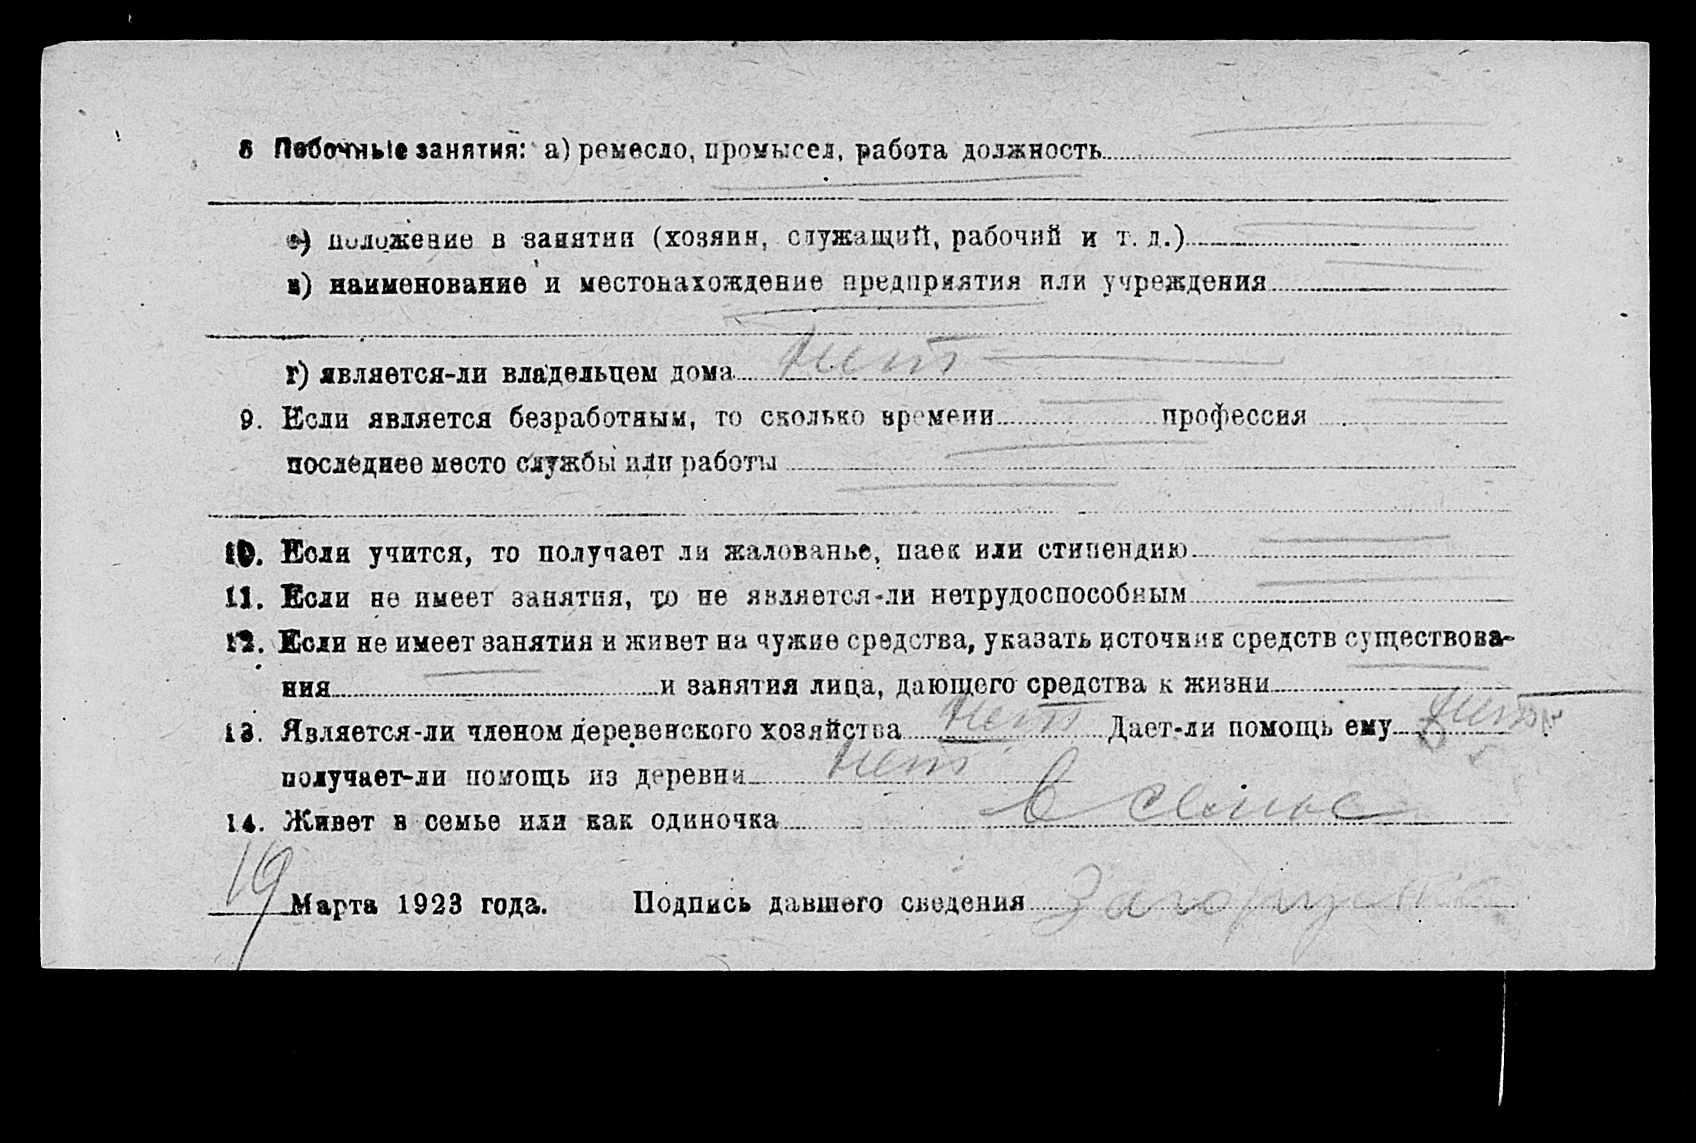 8 Побочные занятия: а) ремесло, промысел, работа должность
б) положение в занятии (хозяин, служащий, рабочий и т. д.)
в) наименование и местонахождение предприятия или учреждения
г) является-ли владельцем дома нет
9. Если является безработным, то сколько времени профессия
последнее место службы или работы
10. Если учится, то получает ли жалованье, паек или стипендию
11. Если не имеет занятия, то не является-ли нетрудоспособным
12. Если не имеет занятия и живет на чужие средства, указать источник средств существова-
ния и занятия лица, дающего средства к жизни
13. Является-ли членом деревенского хозяйства нет Дает-ли помощь ему нет
получает-ли помощь из деревни нет
14. Живет в семье или как одиночка в семье
19 Марта 1923 года. Подпись давшего сведения